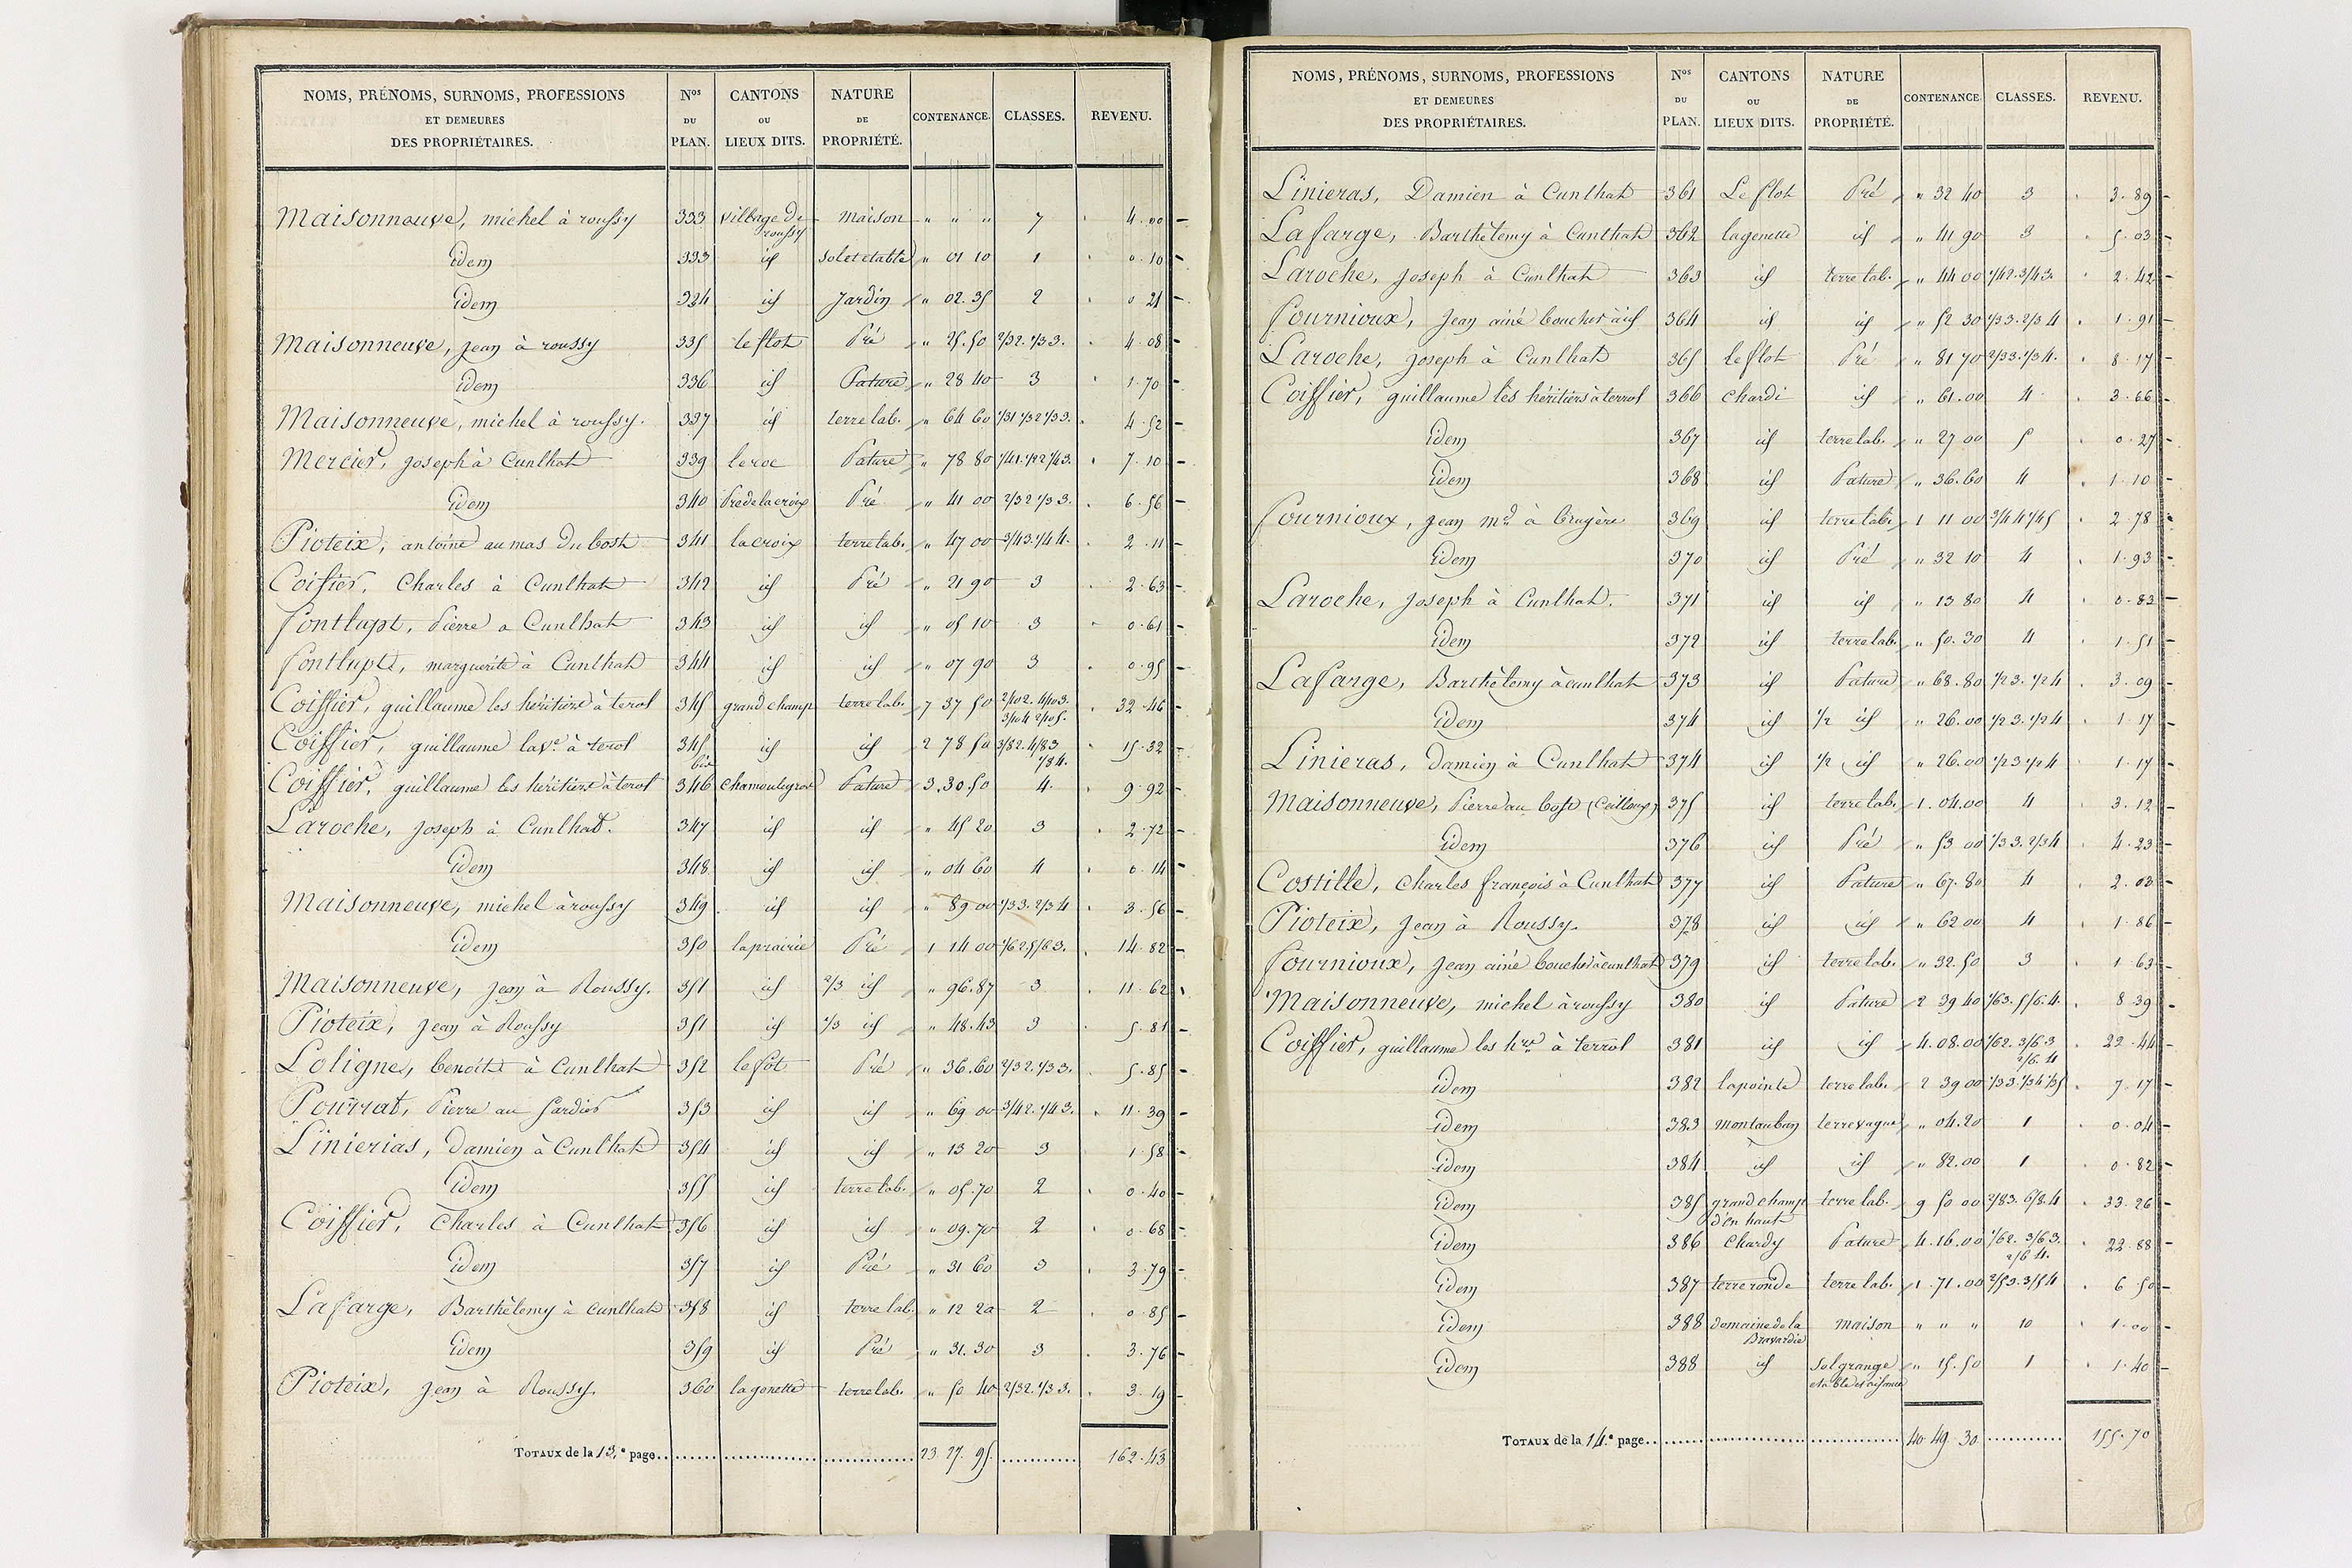 NOMS, PRÉNOMS, SURNOMS, PROFESSIONS ET DEMEURES DES PROPRIÉTAIRES. Nos DU PLAN. CANTONS OU LIEUX DITS. NATURE DE PROPRIÉTÉ. CONTENANCE. CLASSES. REVENU.
Maisonneuve, michel à roussy 333 village de roussy maison " " " 7 4.00
idem 333 id sol et etable " 01 10 1 0.10
idem 334 id Jardin " 02.35 2 0 21
Maisonneuve, jean à roussy 335 le flot Pré " 25.50 2/32.1/33. 4 08
idem 336 id Pature " 28 40 3 1.70
Maisonneuve, michel à roussy. 337 id terre lab. " 64 60 1/31 1/32 1/33. 4.52
Mercier, joseph à Cunlhat 339 le roc Pature " 78 80 1/41.1/22 1/43. 7.10
idem 340 Pré de la croix Pré " 41 00 2/32 1/33. 6.56
Pioteix, antoine au mas du bost 341 la croix terre lab. " 47 00 3/43.1/44. 2.11
Coifier, Charles à Cunlhat 342 id Pré " 21 90 3 2.63
fontlupt, Pierre a Cunlhat 343 id id " 05 10 3 0.61
fontlupt, marguerite à Cunlhat 344 id id " 07 90 3 0.95
Coiffier, guillaume les héritiers à terol 345 grand champ terre lab. 7 37 50 2/102. 4/103. 3/104 2/105. 32.46
Coiffier, guillaume la ve à terol 345 bis id id 2 78 50 3/82.4/83 1/84. 15.32
Coiffier, guillaume les héritiers à terol 346 Pature 3.30.50 4. 9.92
Laroche, joseph à Cunlhat. 347 id id " 45 20 3 2.72
idem 348 id id " 04 60 4 0.14
Maisonneuve, michel à roussy 349 id id " 89 00 1/33.2/34 3.56
idem 350 la prairie Pré 1 14 00 1/62 5/63. 14.82
Maisonneuve, jean à Roussy. 351 id 2/3 id " 96.87 3 11.62
Pioteix, jean à Roussy 351 id 1/3 id " 48.43 3 5.81
Loligne, benoit à Cunlhat 352 le fôt Pré " 36.60 2/32.1/33. 5.85
Pourrat, Pierre au Sardier 353 id id " 69 00 3/42.1/43. 11.39
Linierias, Damien à Cunlhat 354 id id " 13 20 3 1.58
idem 355 id terre lab. " 05.70 2 0.40
Coiffier, Charles à Cunlhat 356 id id " 09.70 2 0.68
idem 357 id Pré " 31 60 3 3.79
Lafarge, Barthélemy à cunlhat 358 id terre lab. " 12 20 2 0.85
idem 359 id Pré " 31.30 3 3.76
Pioteix, jean à Roussy. 360 la genette terre lab. " 50 40 2/32.1/33. 3.19
TOTAUX de la 13.e page 23 27.95. 162.43
NOMS, PRÉNOMS, SURNOMS, PROFESSIONS ET DEMEURES DES PROPRIÉTAIRES. Nos DU PLAN. CANTONS OU LIEUX DITS. NATURE DE PROPRIÉTÉ. CONTENANCE. CLASSES. REVENU.
Linieras, Damien à Cunlhat 361 Le flot Pré " 32 40 3 3.89
Lafarge, Barthélemy à Cunlhat 362 la genette id " 41 90 3 5.03
Laroche, joseph à Cunlhat 363 id terre lab. " 44 00 1/42.3/43. 2.42
fournioux, jean ainé boucher à id 364 id id " 52 30 1/33.2/34 1.91
Laroche, joseph à Cunlhat 365 le flot Pré " 81 70 2/33.1/34. 8.17
Coiffier, guillaume les héritiers à terrol 366 chardi id " 61.00 4 3.66
idem 367 id terre lab. " 27 00 5 0.27
idem 368 id Pature " 36.60 4 1.10
fournioux, jean md à brugère 369 id terre lab. 1 11 00 3/44 1/45 2.78
idem 370 id Pré " 32 10 4 1.93
Laroche, joseph à Cunlhat. 371 id id " 13 80 4 0.83
idem 372 id terre lab. " 50.30 4 1.51
Lafarge, Barthélemy à cunlhat 373 id Pature " 68.80 1/23.1/24 3.09
idem 374 id 1/2 id " 26.00 1/23.1/24 1.17
Linieras, damien à Cunlhat 374 id 1/2 id " 26.00 1/23 1/24 1.17
Maisonneuve, Pierre au bost 375 id terre lab. 1.04.00 4 3.12
idem 376 id Pré " 53 00 1/33.2/34 4.23
Costille, charles françois à Cunlhat 377 id Pature " 67.80 4 2.03
Pioteix, jean à Roussy. 378 id id " 62 00 4 1.86
fournioux, jean ainé boucher à cunlhat 379 id terre lab. " 32.50 3 1.63
Maisonneuve, michel à roussy 380 id Pature 2 39 40 1/63.5/64. 8 39
Coiffier, guillaume les hers à terrol 381 id id 4.08.00 1/62. 3/63 2/64 22.44
idem 382 la pointe terre lab. 2 39 00 1/33.1/34 1/35 7.17
idem 383 montauban terre vague " 04.20 1 0.04
idem 384 id id " 82.00 1 0.82
idem 385 grand champ d'en haut terre lab. 9 50 00 2/83. 6/84 33.26
idem 386 chardy Pature 4.16.00 1/62. 3/63. 2/64. 22.88
idem 387 terre ronde terre lab. 1.71.00 2/53.3/54 6 50
idem 388 domaine de la Bravardie maison " " " 10 1.00
idem 388 id sol grange etable et aisances " 15.50 1 1.40
TOTAUX de la 14.e page 40.49.30 155.70